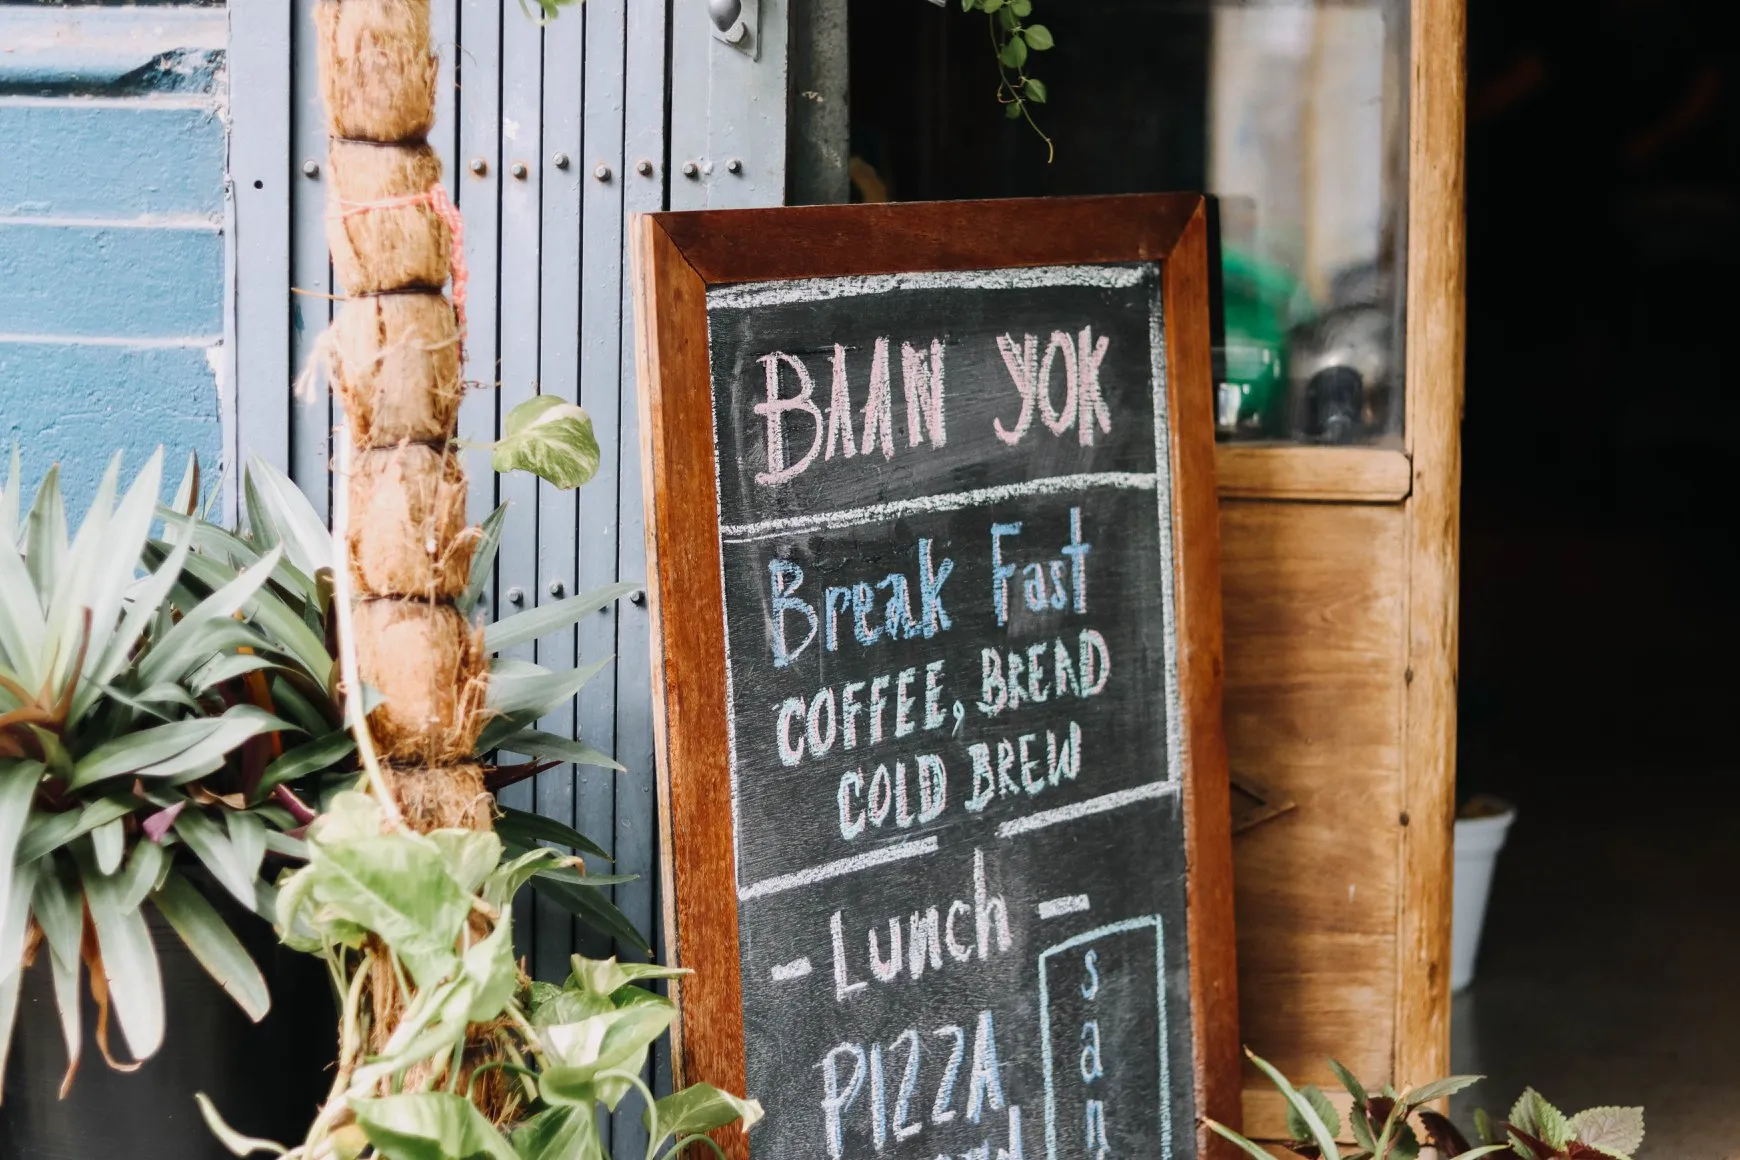 BAAN YOK
Break Fast
COFFEE, BREAD
COLD BREW
- Lunch -
PIZZA
san